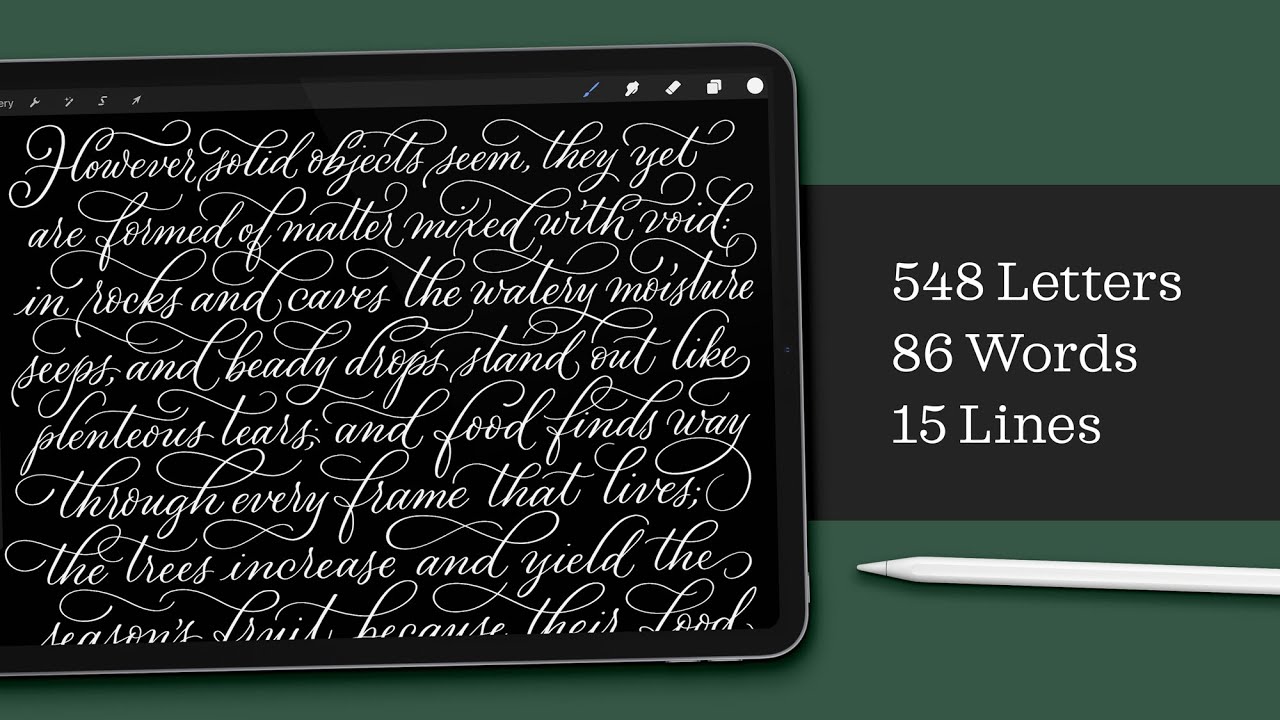 ery
However solid objects seem, they yet
are formed of matter mixed with void:
in rocks and caves the watery moisture
seeps, and beady drops stand out like
plenteous tears; and food finds way
through every frame that lives;
the trees increase and yield the
season's fruit because their food
548 Letters
86 Words
15 Lines